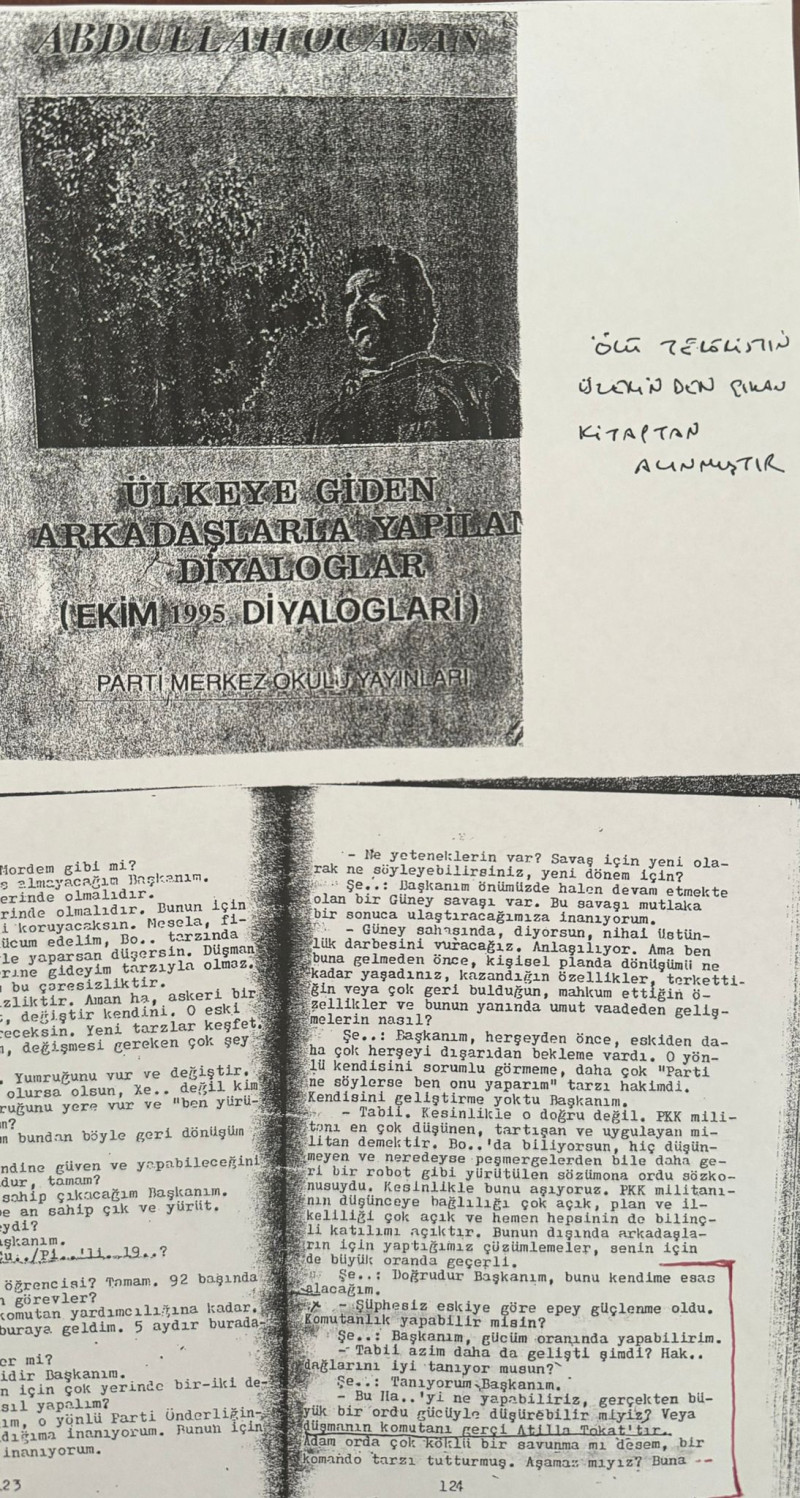 ABDULLAH OCALAN
ÜLKEYE GİDEN
ARKADAŞLARLA YAPİLAN
DİYALOGLAR
(EKİM 1995 DİYALOGLARİ)
PARTİ MERKEZ OKULU YAYINLARI
ÖLÜ
ÜZERİNDEN ÇIKAN
KİTAPTAN
ALINMIŞTIR
Mordem gibi mi?
almayacağım Başkanım.
erinde olmalıdır.
rinde olmalıdır. Bunun için
i koruyacaksın. Mesela, fi-
ücum edelim, Bo.. tarzında
le yaparsan düşersin. Düşman
rine gideyim tarzıyla olmaz.
bu çaresizliktir.
zliktir. Aman ha, askeri bir
, değiştir kendini. O eski
receksin. Yeni tarzlar keşfet.
, değişmesi gereken çok şey
. Yumruğunu vur ve değiştir.
olursa olsun, Xe.. değil kim
ruğunu yere vur ve "ben yürü-
m?
m bundan böyle geri dönüşüm
ndine güven ve yapabileceğini
dur, tamam?
sahip çıkacağım Başkanım.
e an sahip çık ve yürüt.
eydi?
aşkanım.
öğrencisi? Tamam. 92 başında
görevler?
komutan yardımcılığına kadar.
buraya geldim. 5 aydır burada-
er mi?
idir Başkanım.
n için çok yerinde bir-iki de-
sıl yapalım?
ım, o yönlü Parti Önderliğin-
dığıma inanıyorum. Bunun için
inanıyorum.
23
- Ne yeteneklerin var? Savaş için yeni ola-
rak ne söyleyebilirsiniz, yeni dönem için?
Şe..: Başkanım önümüzde halen devam etmekte
olan bir Güney savaşı var. Bu savaşı mutlaka
bir sonuca ulaştıracağımıza inanıyorum.
- Güney sahasında, diyorsun, nihai üstün-
lük darbesini vuracağız. Anlaşılıyor. Ama ben
buna gelmeden önce, kişisel planda dönüşümü ne
kadar yaşadınız, kazandığın özellikler, terketti-
ğin veya çok geri bulduğun, mahkum ettiğin ö-
zellikler ve bunun yanında umut vaadeden geliş-
melerin nasıl?
Şe..: Başkanım, herşeyden önce, eskiden da-
ha çok herşeyi dışarıdan bekleme vardı. O yön-
lü kendisini sorumlu görmeme, daha çok "Parti
ne söylerse ben onu yaparım" tarzı hakimdi.
Kendisini geliştirme yoktu Başkanım.
- Tabii. Kesinlikle o doğru değil. PKK mili-
tanı en çok düşünen, tartışan ve uygulayan mi-
litan demektir. Bo..'da biliyorsun, hiç düşün-
meyen ve neredeyse peşmergelerden bile daha ge-
ri bir robot gibi yürütülen sözümona ordu sözko-
nusuydu. Kesinlikle bunu aşıyoruz. PKK militanı-
nın düşünceye bağlılığı çok açık, plan ve il-
keliliği çok açık ve hemen hepsinin de bilinç-
li katılımı açıktır. Bunun dışında arkadaşla-
rın için yaptığımız çözümlemeler, senin için
de büyük oranda geçerli.
Şe..: Doğrudur Başkanım, bunu kendime esas
alacağım.
- Şüphesiz eskiye göre epey güçlenme oldu.
Komutanlık yapabilir misin?
Şe..: Başkanım, gücüm oranında yapabilirim.
- Tabii azim daha da gelişti şimdi? Hak..
dağlarını iyi tanıyor musun?
Şe..: Tanıyorum Başkanım.
- Bu Ha..'yi ne yapabiliriz, gerçekten bü-
yük bir ordu gücüyle düşürebilir miyiz? Veya
düşmanın komutanı gerçi Atilla Tokat'tır.
Adam orda çok köklü bir savunma mı desem, bir
komando tarzı tutturmuş. Aşamaz mıyız? Buna
124